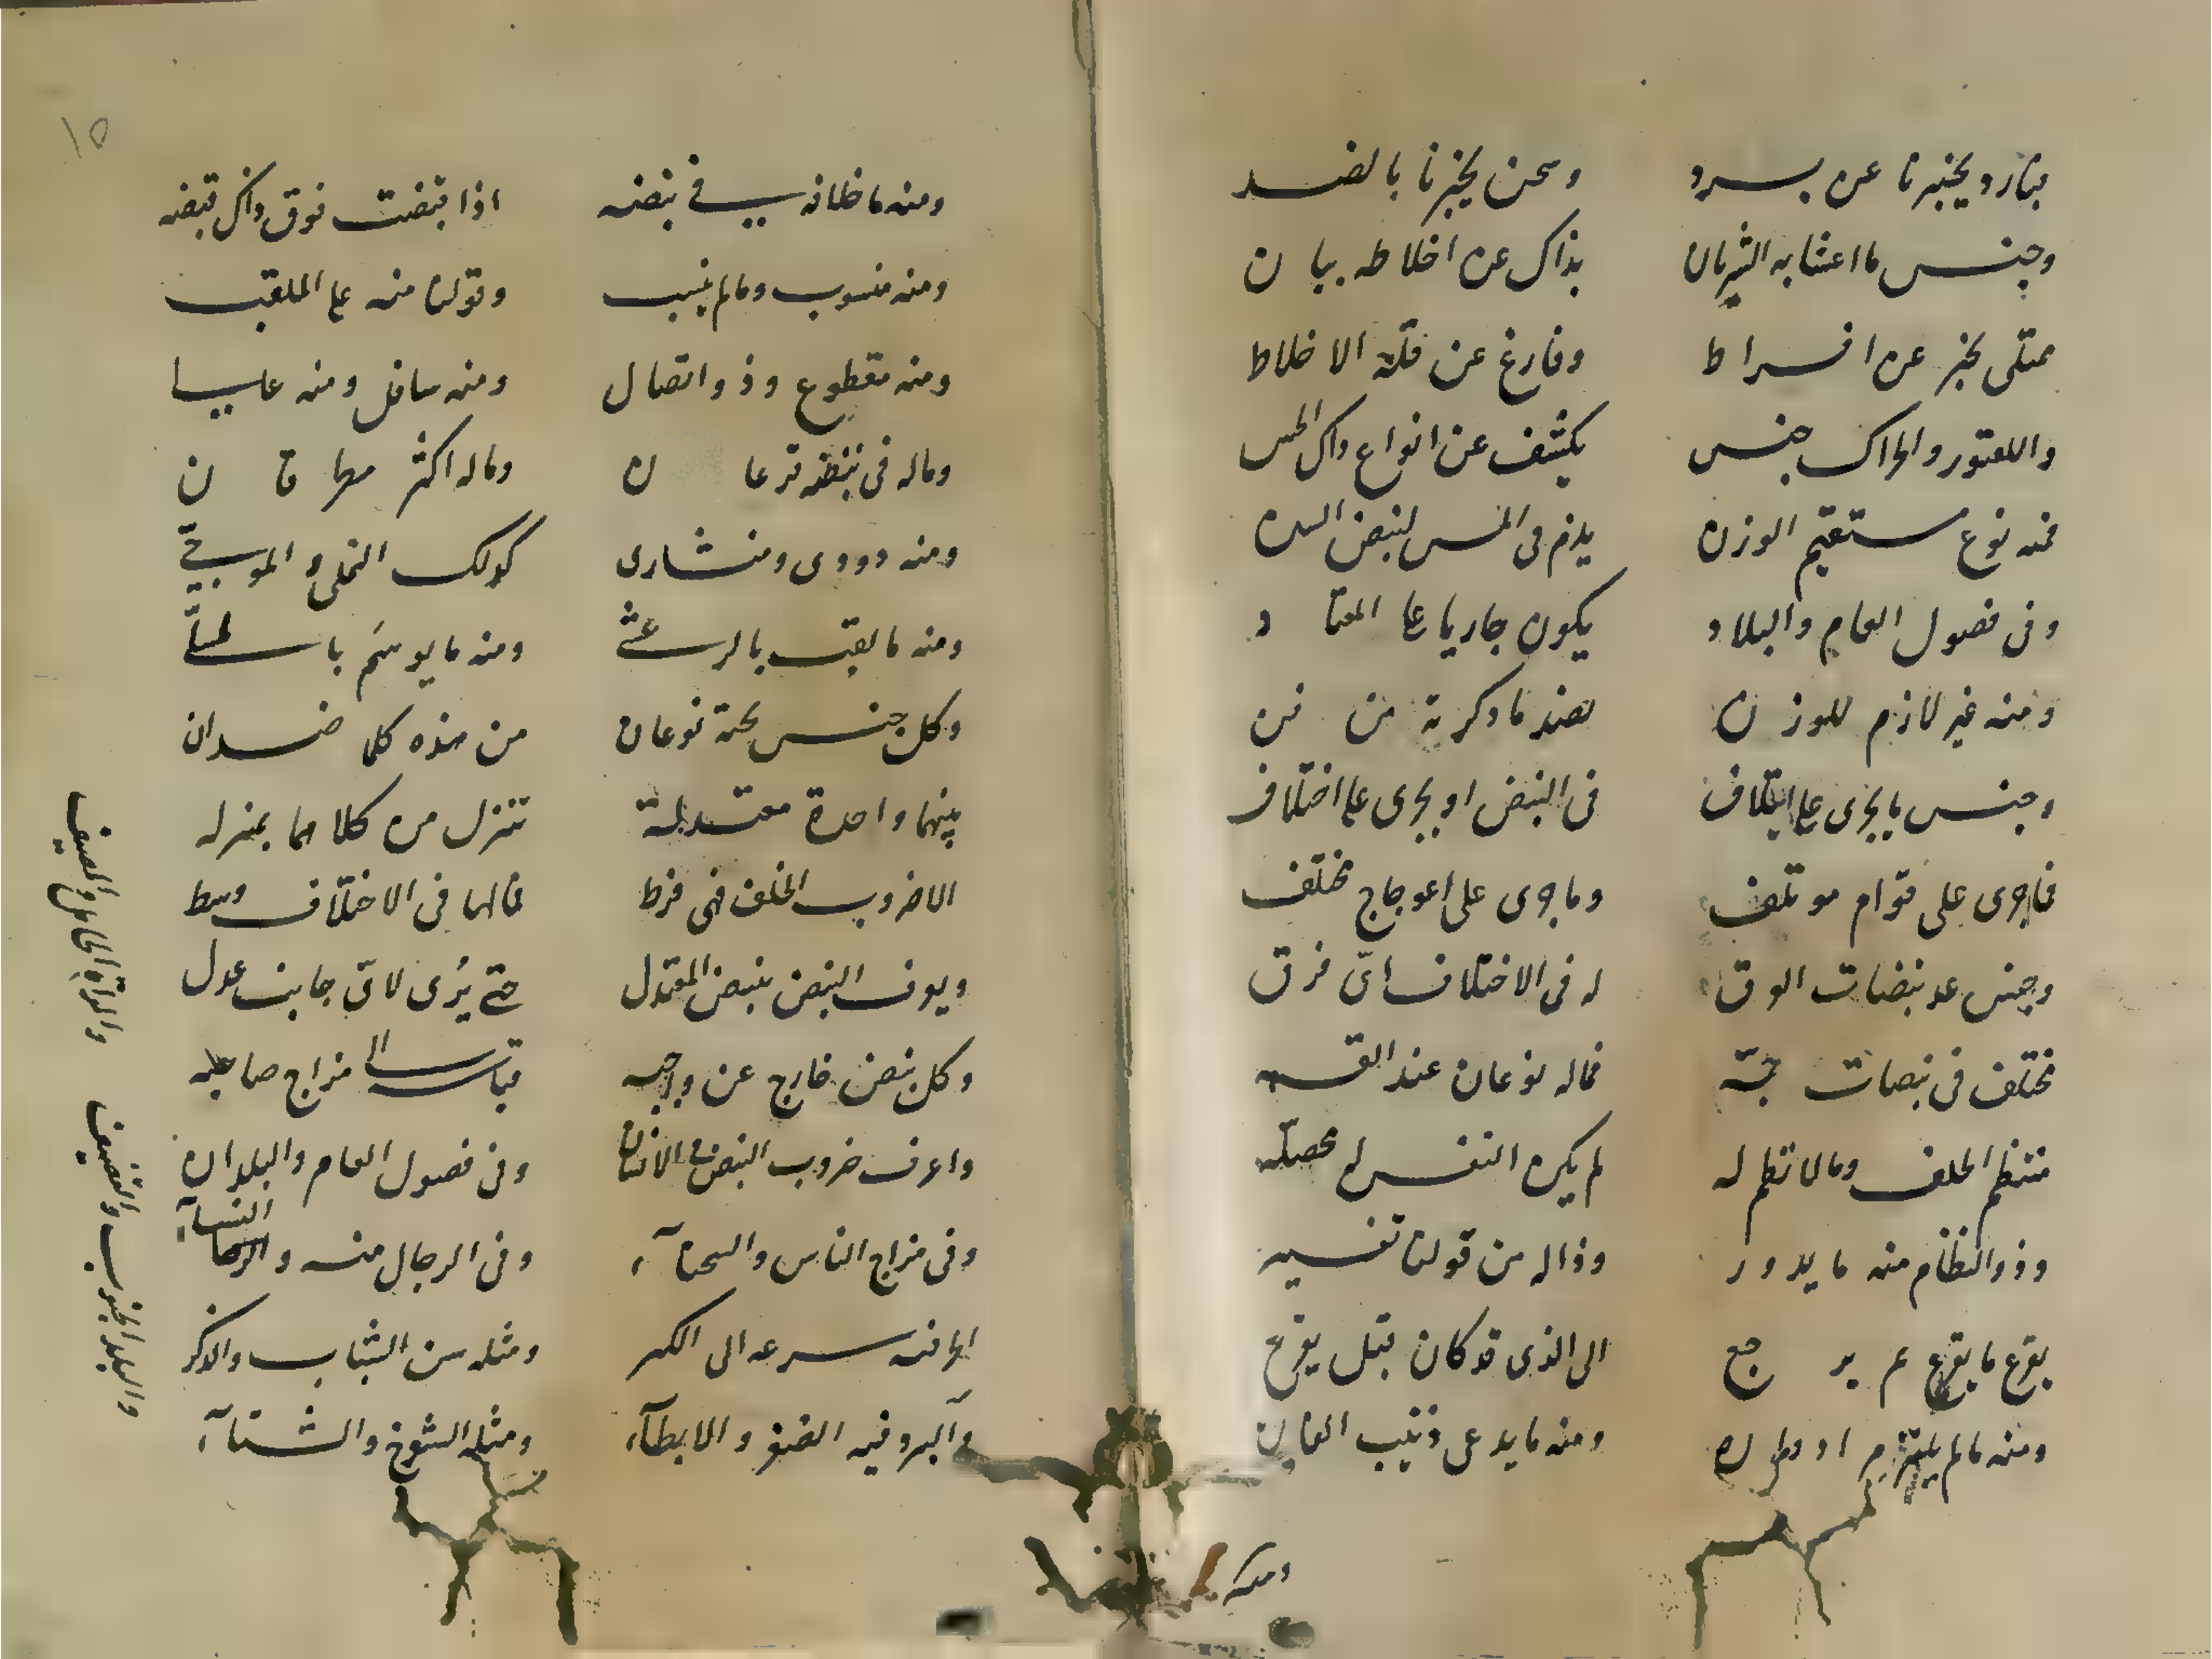 فبارد يخبرنا عن برد وسخن يخبرنا بالضد
وجنس ما اعشابه الشريان بذاك عن اخلاطه بيان
ممتلى يخبر عن افراط وفارغ عن قلة الاخلاط
واللعتور والحراك جنس يكشف عن انواع ذاك الحس
فمنه نوع مستقيم الوزن يلزم فى الجس لنبض السن
وفى فصول العام والبلاد يكون جاريا على المعتاد
ومنه غير لازم للوزن بضد ما ذكرته من فن
وجنس ما يجرى على ايتلاف فى النبض او يجرى على اختلاف
فما جرى على قوام موتلف وما جرى على اعوجاج مختلف
وجنس عد نبضات العرق له فى الاختلاف اىّ فرق
مختلف فى نبضات جمّه فما له نوعان عند القسمه
منتظم الخلف وما لا نظم له لم يكن النفس له محصله
وذو النظام منه ما يدور وذا له من قولنا تفسير
يقرع ما يقرع ثم يرجع الى الذى قد كان قبل يقرع
ومنه ما لم يلتزم ومنه ما يدعى ذنيب الفار
ومنه
١٥
ومنه ما خلافه فى نبضه اذا قبضت فوق ذاك قبضه
ومنه منسوب وما لم ينسب وقولنا منه على الملقب
ومنه مقطوع وذو اتصال ومنه سافل ومنه عالى
وما له فى نبضه قرعان وما له اكثر
ومنه دودى ومنشارى كذلك النملى والموجىّ
ومنه ما لقب بالرعشى ومنه ما يوسم بالسلىّ
وكل جنس تحته نوعان من هذه كلها ضدان
بينهما واحدة معتدلة تنزل من كلاهما بمنزله
الا ضروب الخلف فهى فرط فما لها فى الاختلاف وسط
ويعرف النبض بنبض المعتدل حتى يُرى لاىّ جانب عدل
وكل نبض خارج عن واجبه قياسه الى مزاج صاحبه
واعرف ضروب النبض فى الانسان وفى فصول العام والبلدان
وفى مزاج الناس والسحناء وفى الرجال منه والنسآء
الحر فيه سرعه الى الكبر ومثله سن الشباب والذكر
والبرد فيه الصغر والابطآء ومثله الشيوخ والشتآء
والمراة الحامل والصيف
والبلد الجنوب والقضيف